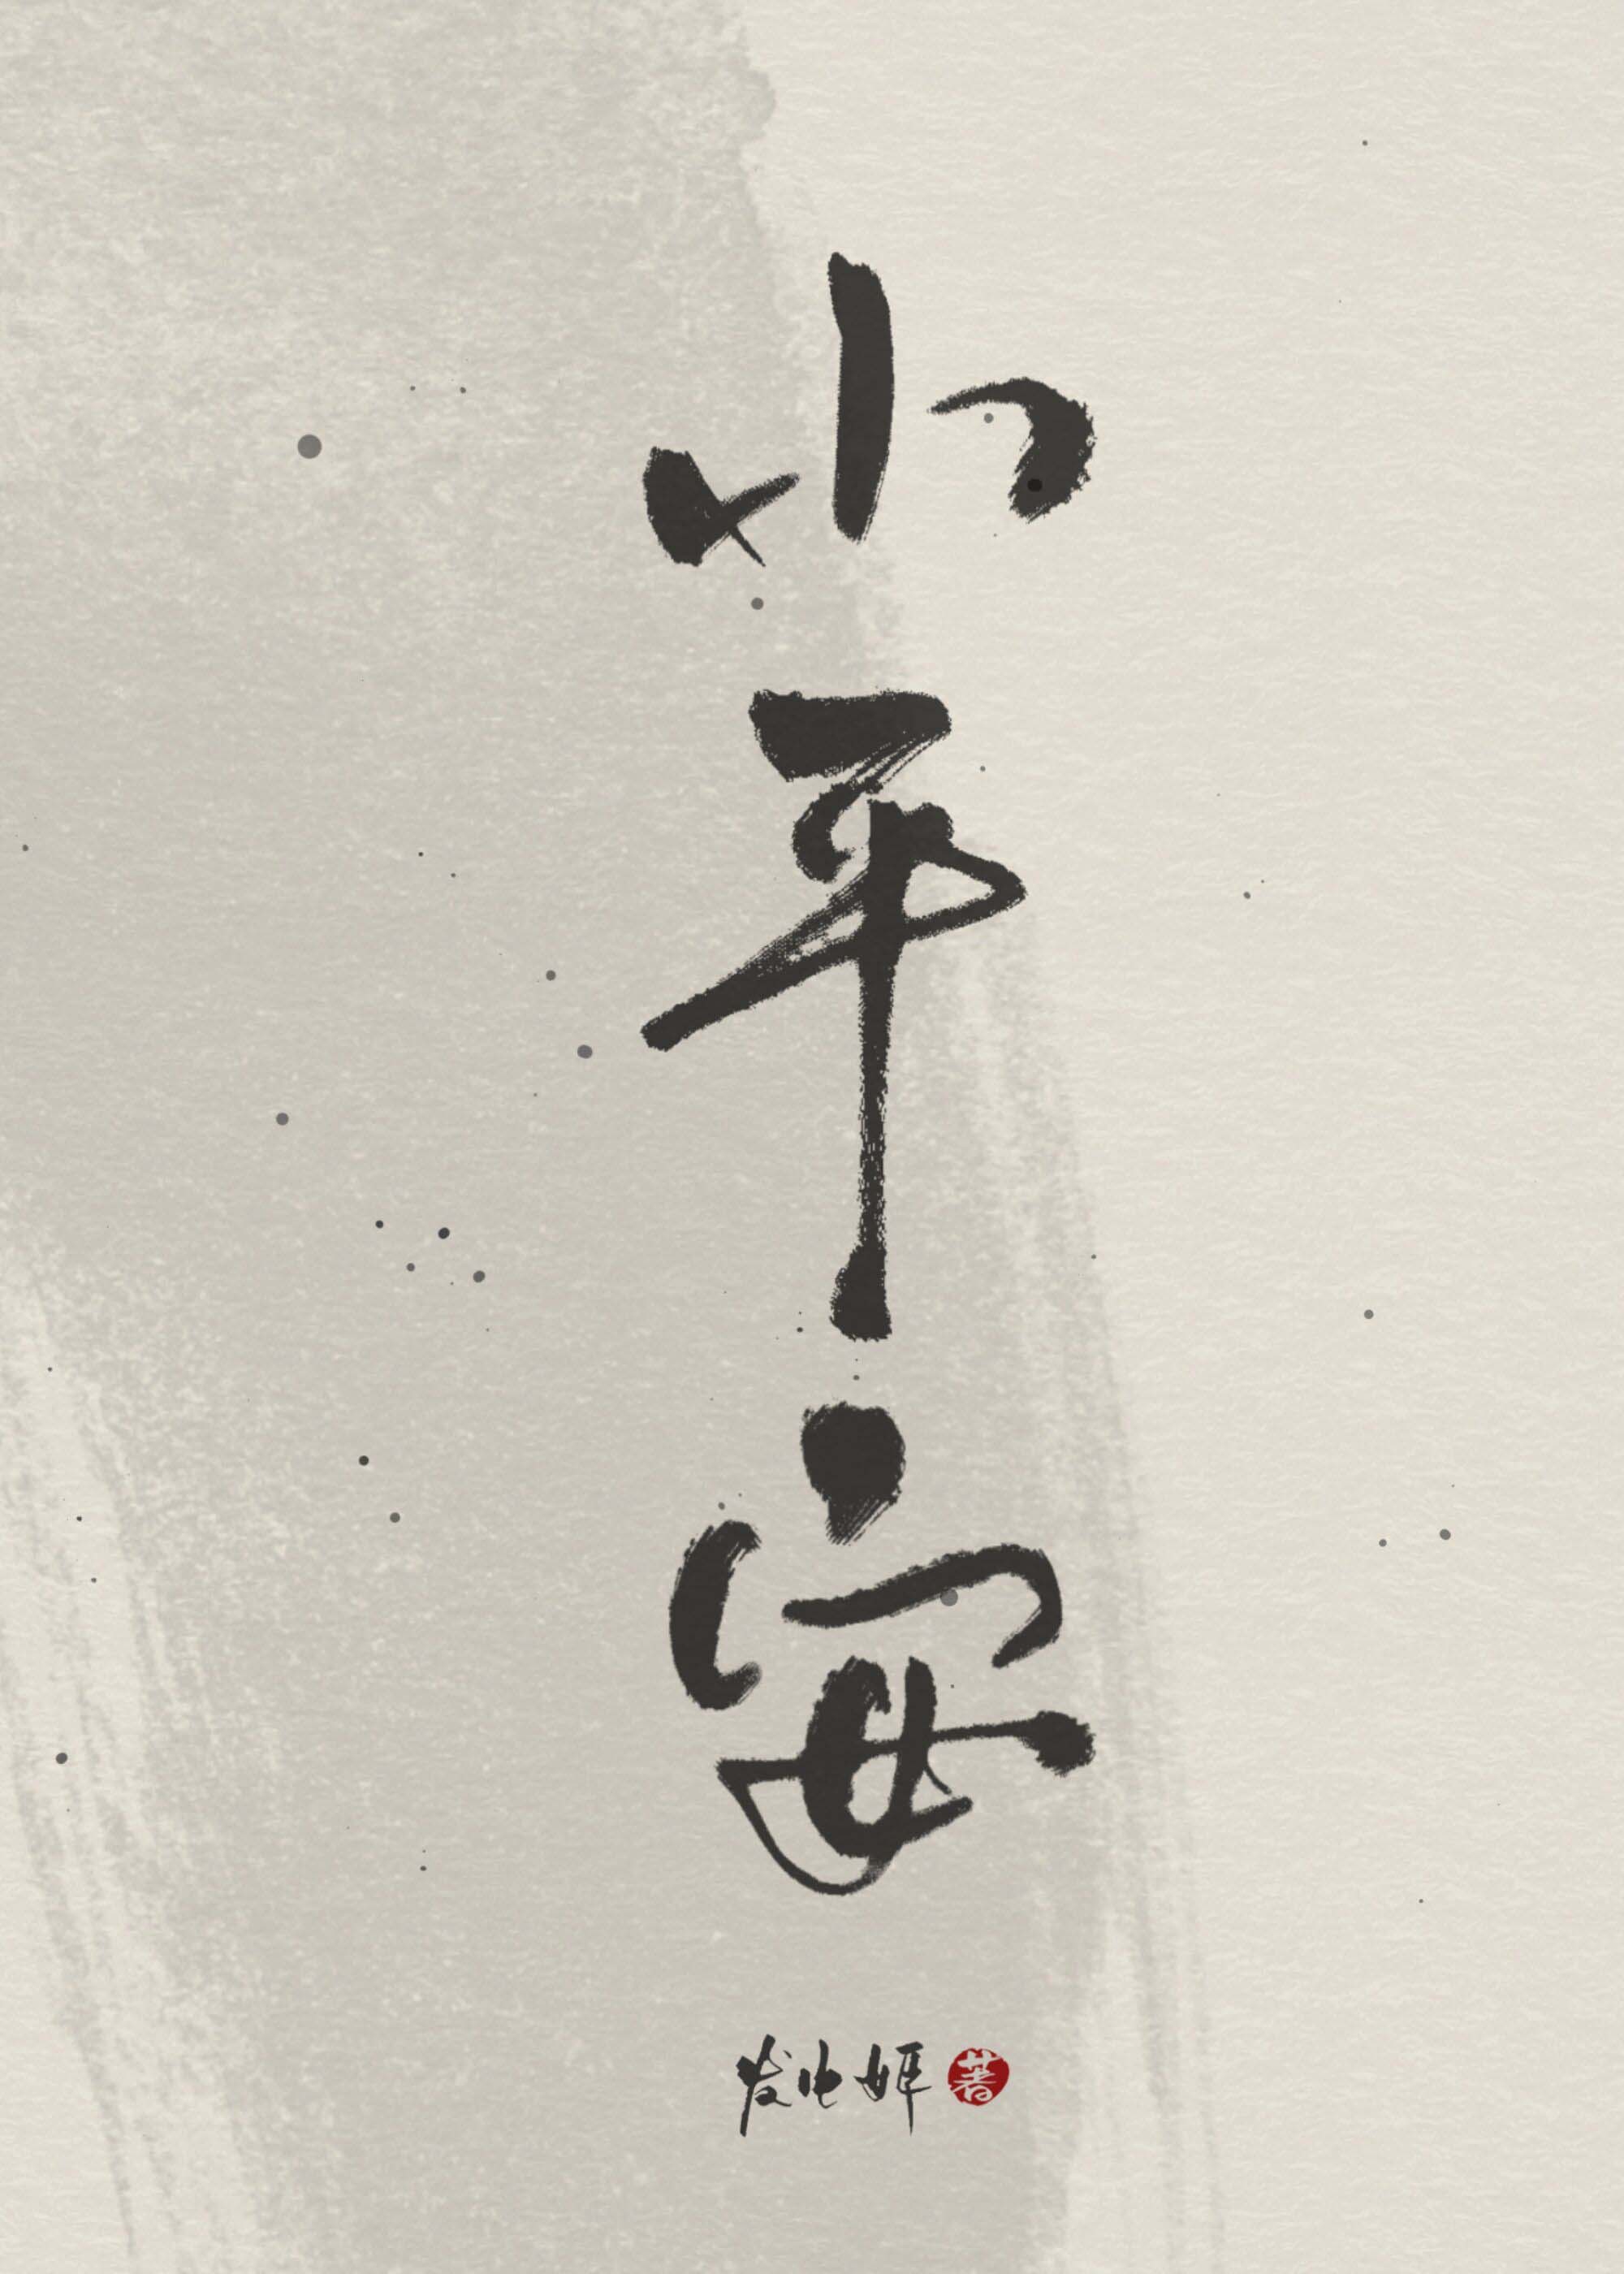 小平安
发电姬 著